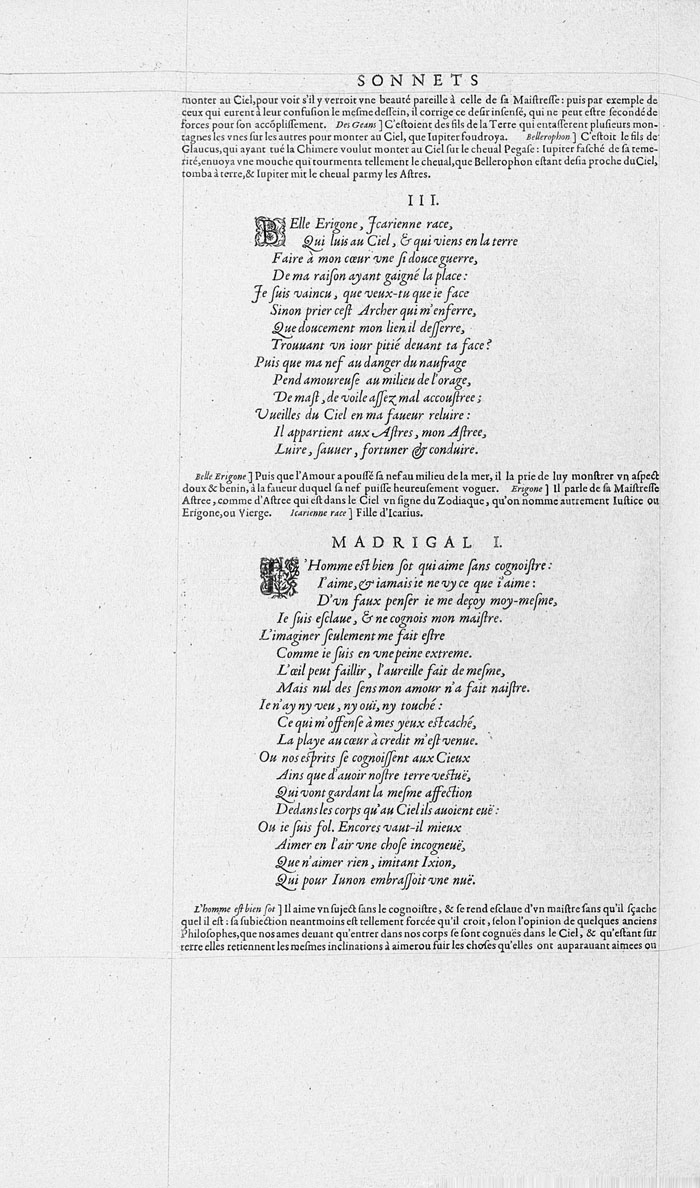 SONNETS
monter au Ciel, pour voir s'il y verroit vne beauté pareille à celle de sa Maiſtreſſe: puis par exemple de
ceux qui eurent à leur confuſion le meſme deſſein, il corrige ce deſir inſenſé, qui ne peut eſtre ſecondé de
forces pour ſon accõpliſſement. Des Geans ] C'eſtoient des fils de la Terre qui entaſſerent pluſieurs mon-
tagnes les vnes ſur les autres pour monter au Ciel, que Iupiter foudroya. Bellerophon ] C'eſtoit le fils de
Glaucus, qui ayant tué la Chimere voulut monter au Ciel ſur le cheual Pegaſe: Iupiter faſché de ſa teme-
rité, enuoya vne mouche qui tourmenta tellement le cheual, que Bellerophon eſtant deſia proche du Ciel,
tomba à terre, & Iupiter mit le cheual parmy les Aſtres.
III.
BElle Erigone, Icarienne race,
Qui luis au Ciel, & qui viens en la terre
Faire à mon cœur vne ſi douce guerre,
De ma raiſon ayant gaigné la place:
Je ſuis vaincu, que veux-tu que ie face
Sinon prier ceſt Archer qui m'enferre,
Que doucement mon lien il deſſerre,
Trouuant vn iour pitié deuant ta face?
Puis que ma nef au danger du naufrage
Pend amoureuſe au milieu de l'orage,
De maſt, de voile aſſez mal accouſtree;
Vueilles du Ciel en ma faueur reluire:
Il appartient aux Aſtres, mon Aſtree,
Luire, ſauuer, fortuner & conduire.
Belle Erigone ] Puis que l'Amour a pouſſé ſa nef au milieu de la mer, il la prie de luy monſtrer vn aſpect
doux & benin, à la faueur duquel ſa nef puiſſe heureuſement voguer. Erigone ] Il parle de ſa Maiſtreſſe
Aſtree, comme d'Aſtree qui eſt dans le Ciel vn ſigne du Zodiaque, qu'on nomme autrement Iuſtice ou
Erigone, ou Vierge. Icarienne race ] Fille d'Icarius.
MADRIGAL I.
L'Homme eſt bien ſot qui aime ſans cognoiſtre:
I'aime, & iamais ie ne vy ce que i'aime:
D'vn faux penſer ie me deçoy moy-meſme,
Ie ſuis eſclaue, & ne cognois mon maiſtre.
L'imaginer ſeulement me fait eſtre
Comme ie ſuis en vne peine extreme.
L'œil peut faillir, l'aureille fait de meſme,
Mais nul des ſens mon amour n'a fait naiſtre.
Ie n'ay ny veu, ny ouï, ny touché:
Ce qui m'offenſe à mes yeux eſt caché,
La playe au cœur à credit m'eſt venue.
Ou nos eſprits ſe cognoiſſent aux Cieux
Ains que d'auoir noſtre terre veſtuë,
Qui vont gardant la meſme affection
Dedans les corps qu'au Ciel ils auoient euë:
Ou ie ſuis fol. Encores vaut-il mieux
Aimer en l'air vne choſe incogneuë,
Que n'aimer rien, imitant Ixion,
Qui pour Iunon embraſſoit vne nuë.
L'homme eſt bien ſot ] Il aime vn ſuject ſans le cognoiſtre, & ſe rend eſclaue d'vn maiſtre ſans qu'il ſçache
quel il eſt: ſa ſubiection neantmoins eſt tellement forcée qu'il croit, ſelon l'opinion de quelques anciens
Philoſophes, que nos ames deuant qu'entrer dans nos corps ſe ſont cognuës dans le Ciel, & qu'eſtant ſur
terre elles retiennent les meſmes inclinations à aimer ou fuir les choſes qu'elles ont auparauant aimees ou